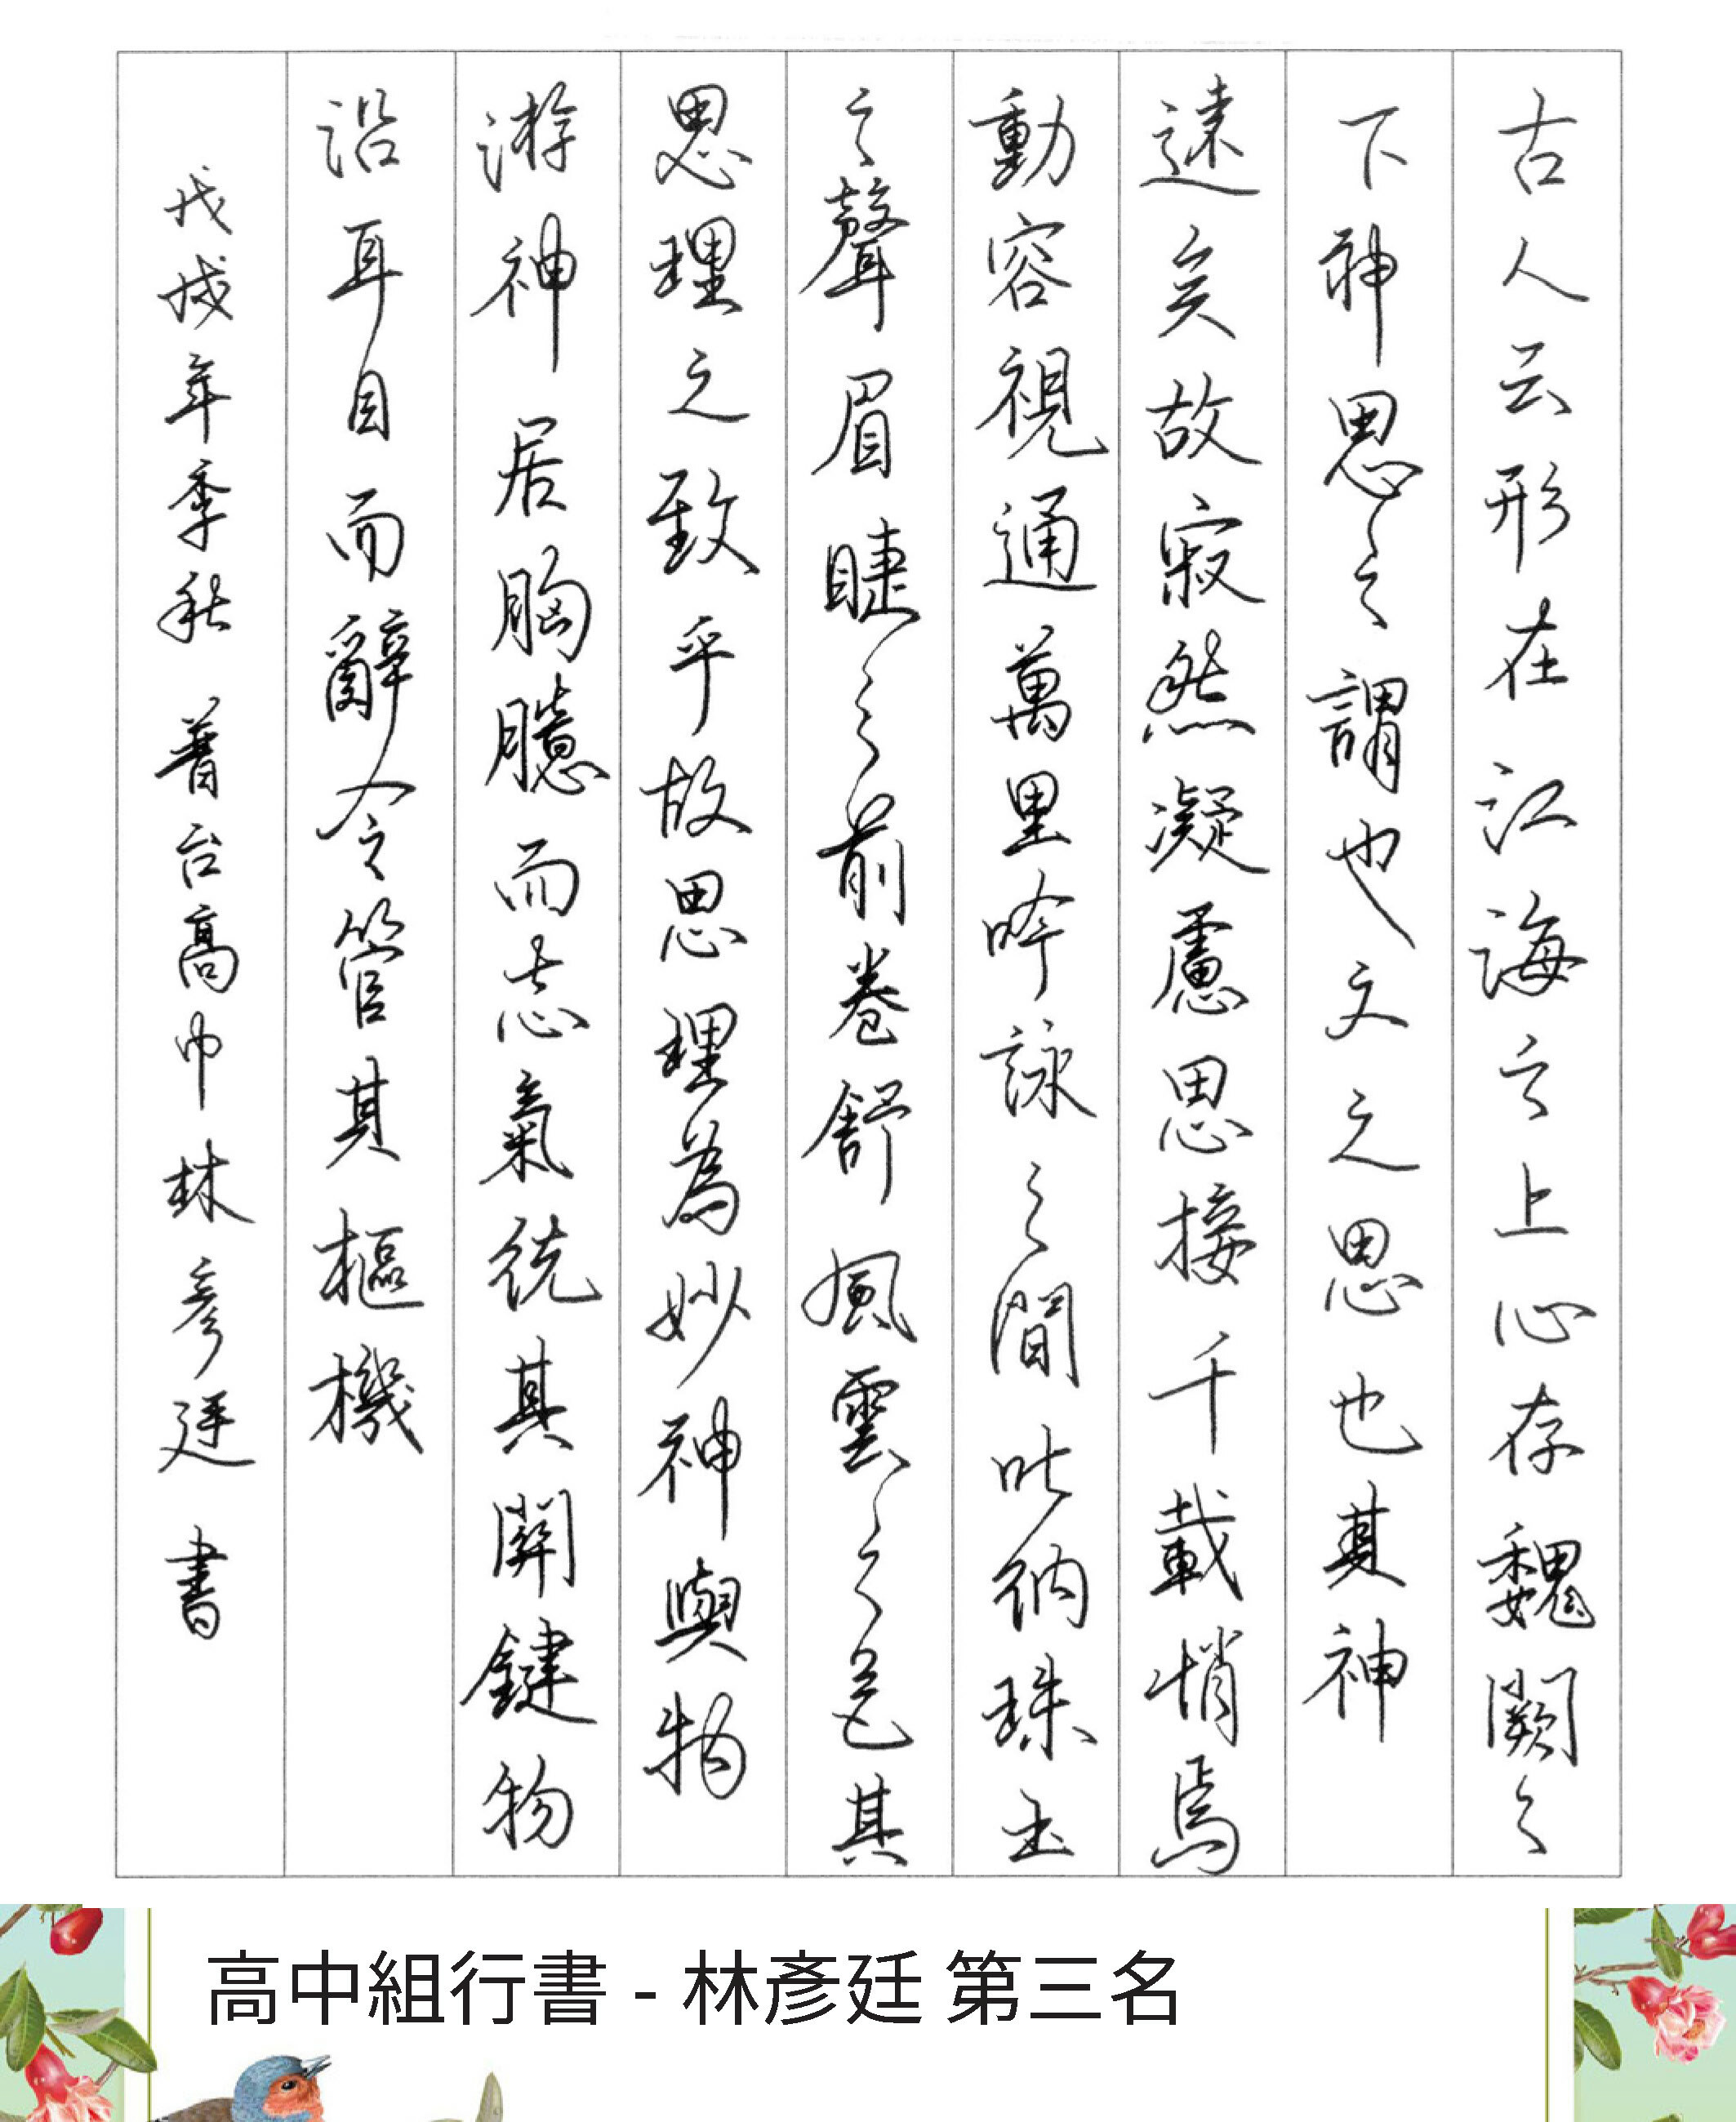 古人云形在江海之上心存魏闕之
下神思之謂也文之思也其神
遠矣故寂然凝慮思接千載悄焉
動容視通萬里吟詠之間吐納珠玉
之聲眉睫之前卷舒風雲之色其
思理之致乎故思理為妙神與物
游神居胸臆而志氣統其關鍵物
沿耳目而辭令管其樞機
戊戌年季秋 普台高中林彥廷書
高中組行書 - 林彥廷 第三名